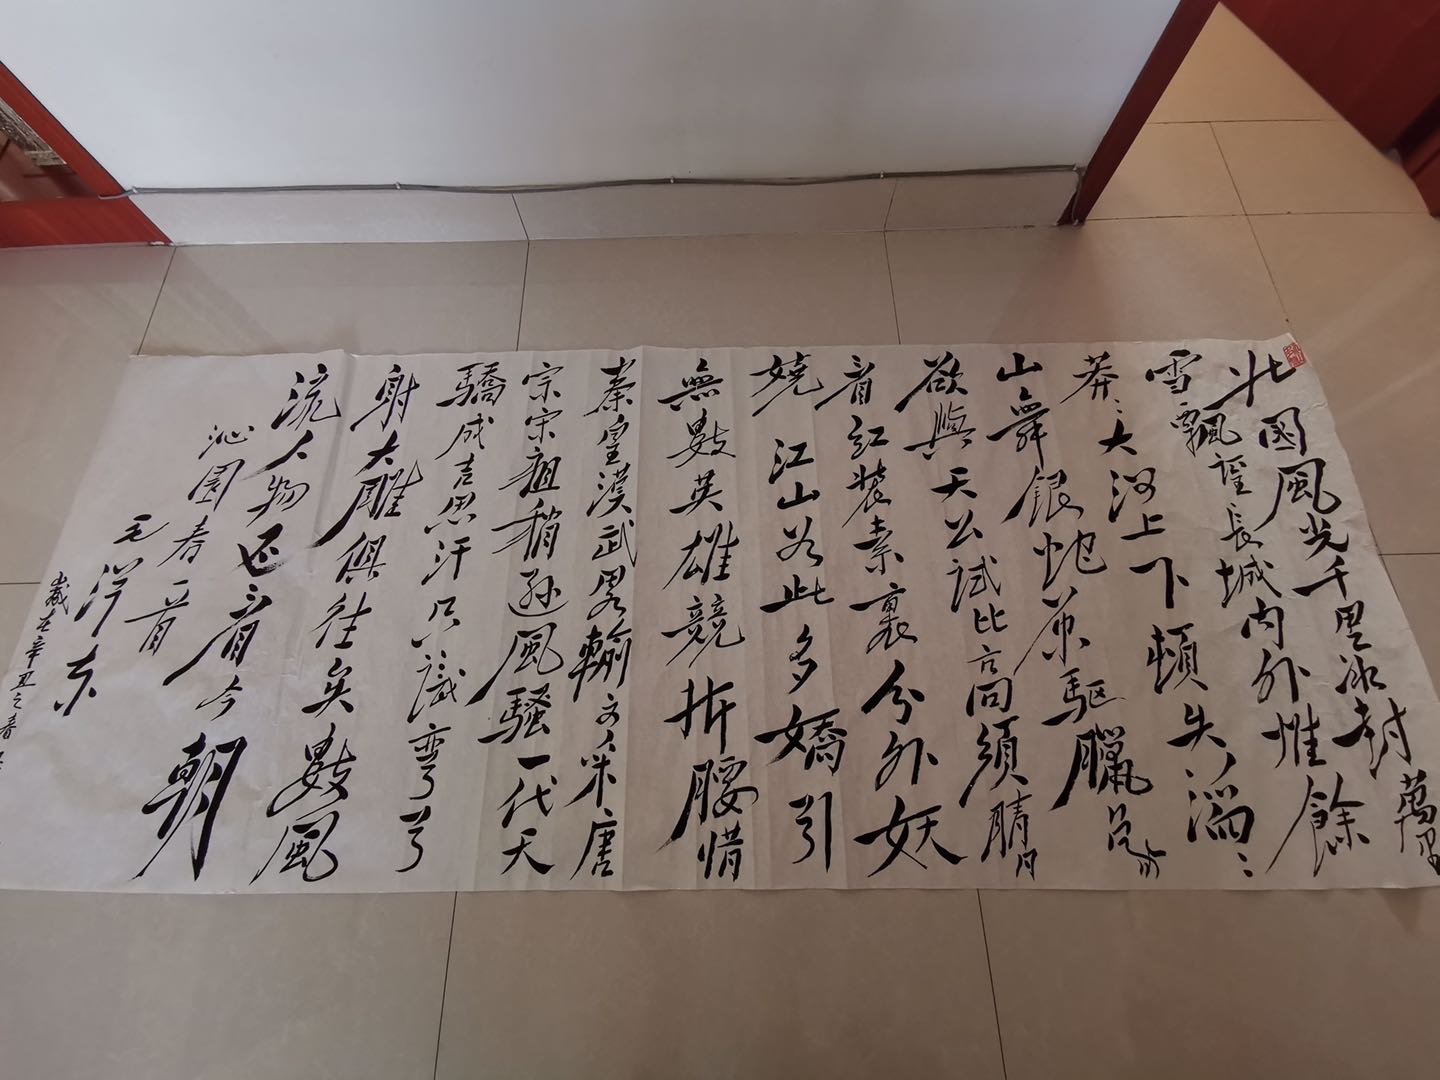 北國風光千里冰封萬里
雪飄望長城內外惟餘
莽〻大河上下頓失滔〻
山舞銀蛇原驅臘象
欲與天公試比高須晴日
看紅裝素裹分外妖
嬈 江山如此多嬌引
無數英雄競折腰惜
秦皇漢武畧輸文采唐
宗宋祖稍遜風騷一代天
驕成吉思汗只識彎弓
射大雕俱往矣數風
流人物还看今朝
沁園春一首
毛泽东
歲在辛丑之春